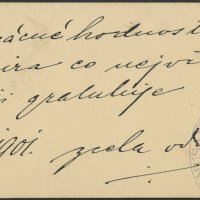 vzácné hodnosti
íra co nejví
ji gratuluje
1901. zcela od